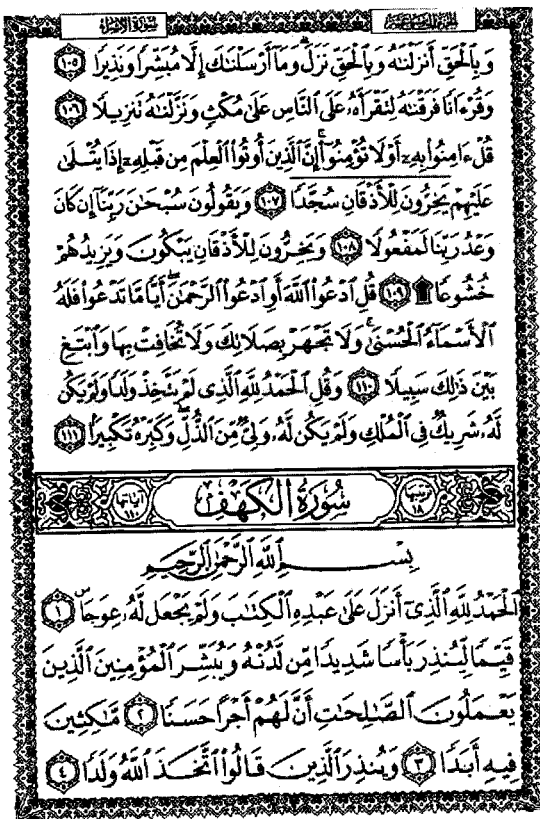 سورة الإسراء الجزء الخامس عشر
وَبِٱلْحَقِّ أَنزَلْنَٰهُ وَبِٱلْحَقِّ نَزَلَ ۗ وَمَآ أَرْسَلْنَٰكَ إِلَّا مُبَشِّرًا وَنَذِيرًا ١٠٥
وَقُرْءَانًا فَرَقْنَٰهُ لِتَقْرَأَهُۥ عَلَى ٱلنَّاسِ عَلَىٰ مُكْثٍ وَنَزَّلْنَٰهُ تَنزِيلًا ١٠٦
قُلْ ءَامِنُوا۟ بِهِۦٓ أَوْ لَا تُؤْمِنُوٓا۟ ۚ إِنَّ ٱلَّذِينَ أُوتُوا۟ ٱلْعِلْمَ مِن قَبْلِهِۦٓ إِذَا يُتْلَىٰ
عَلَيْهِمْ يَخِرُّونَ لِلْأَذْقَانِ سُجَّدًا ١٠٧ وَيَقُولُونَ سُبْحَٰنَ رَبِّنَآ إِن كَانَ
وَعْدُ رَبِّنَا لَمَفْعُولًا ١٠٨ وَيَخِرُّونَ لِلْأَذْقَانِ يَبْكُونَ وَيَزِيدُهُمْ
خُشُوعًا ۩ ١٠٩ قُلِ ٱدْعُوا۟ ٱللَّهَ أَوِ ٱدْعُوا۟ ٱلرَّحْمَٰنَ ۖ أَيًّا مَّا تَدْعُوا۟ فَلَهُ
ٱلْأَسْمَآءُ ٱلْحُسْنَىٰ ۚ وَلَا تَجْهَرْ بِصَلَاتِكَ وَلَا تُخَافِتْ بِهَا وَٱبْتَغِ
بَيْنَ ذَٰلِكَ سَبِيلًا ١١٠ وَقُلِ ٱلْحَمْدُ لِلَّهِ ٱلَّذِى لَمْ يَتَّخِذْ وَلَدًا وَلَمْ يَكُن
لَّهُۥ شَرِيكٌ فِى ٱلْمُلْكِ وَلَمْ يَكُن لَّهُۥ وَلِىٌّ مِّنَ ٱلذُّلِّ ۖ وَكَبِّرْهُ تَكْبِيرًۢا ١١١
ترتيبها ١٨ سُورَةُ الكَهْفِ آياتها ١١٠
بِسْمِ ٱللَّهِ ٱلرَّحْمَٰنِ ٱلرَّحِيمِ
ٱلْحَمْدُ لِلَّهِ ٱلَّذِىٓ أَنزَلَ عَلَىٰ عَبْدِهِ ٱلْكِتَٰبَ وَلَمْ يَجْعَل لَّهُۥ عِوَجَاۜ ١
قَيِّمًا لِّيُنذِرَ بَأْسًا شَدِيدًا مِّن لَّدُنْهُ وَيُبَشِّرَ ٱلْمُؤْمِنِينَ ٱلَّذِينَ
يَعْمَلُونَ ٱلصَّٰلِحَٰتِ أَنَّ لَهُمْ أَجْرًا حَسَنًا ٢ مَّٰكِثِينَ
فِيهِ أَبَدًا ٣ وَيُنذِرَ ٱلَّذِينَ قَالُوا۟ ٱتَّخَذَ ٱللَّهُ وَلَدًا ٤